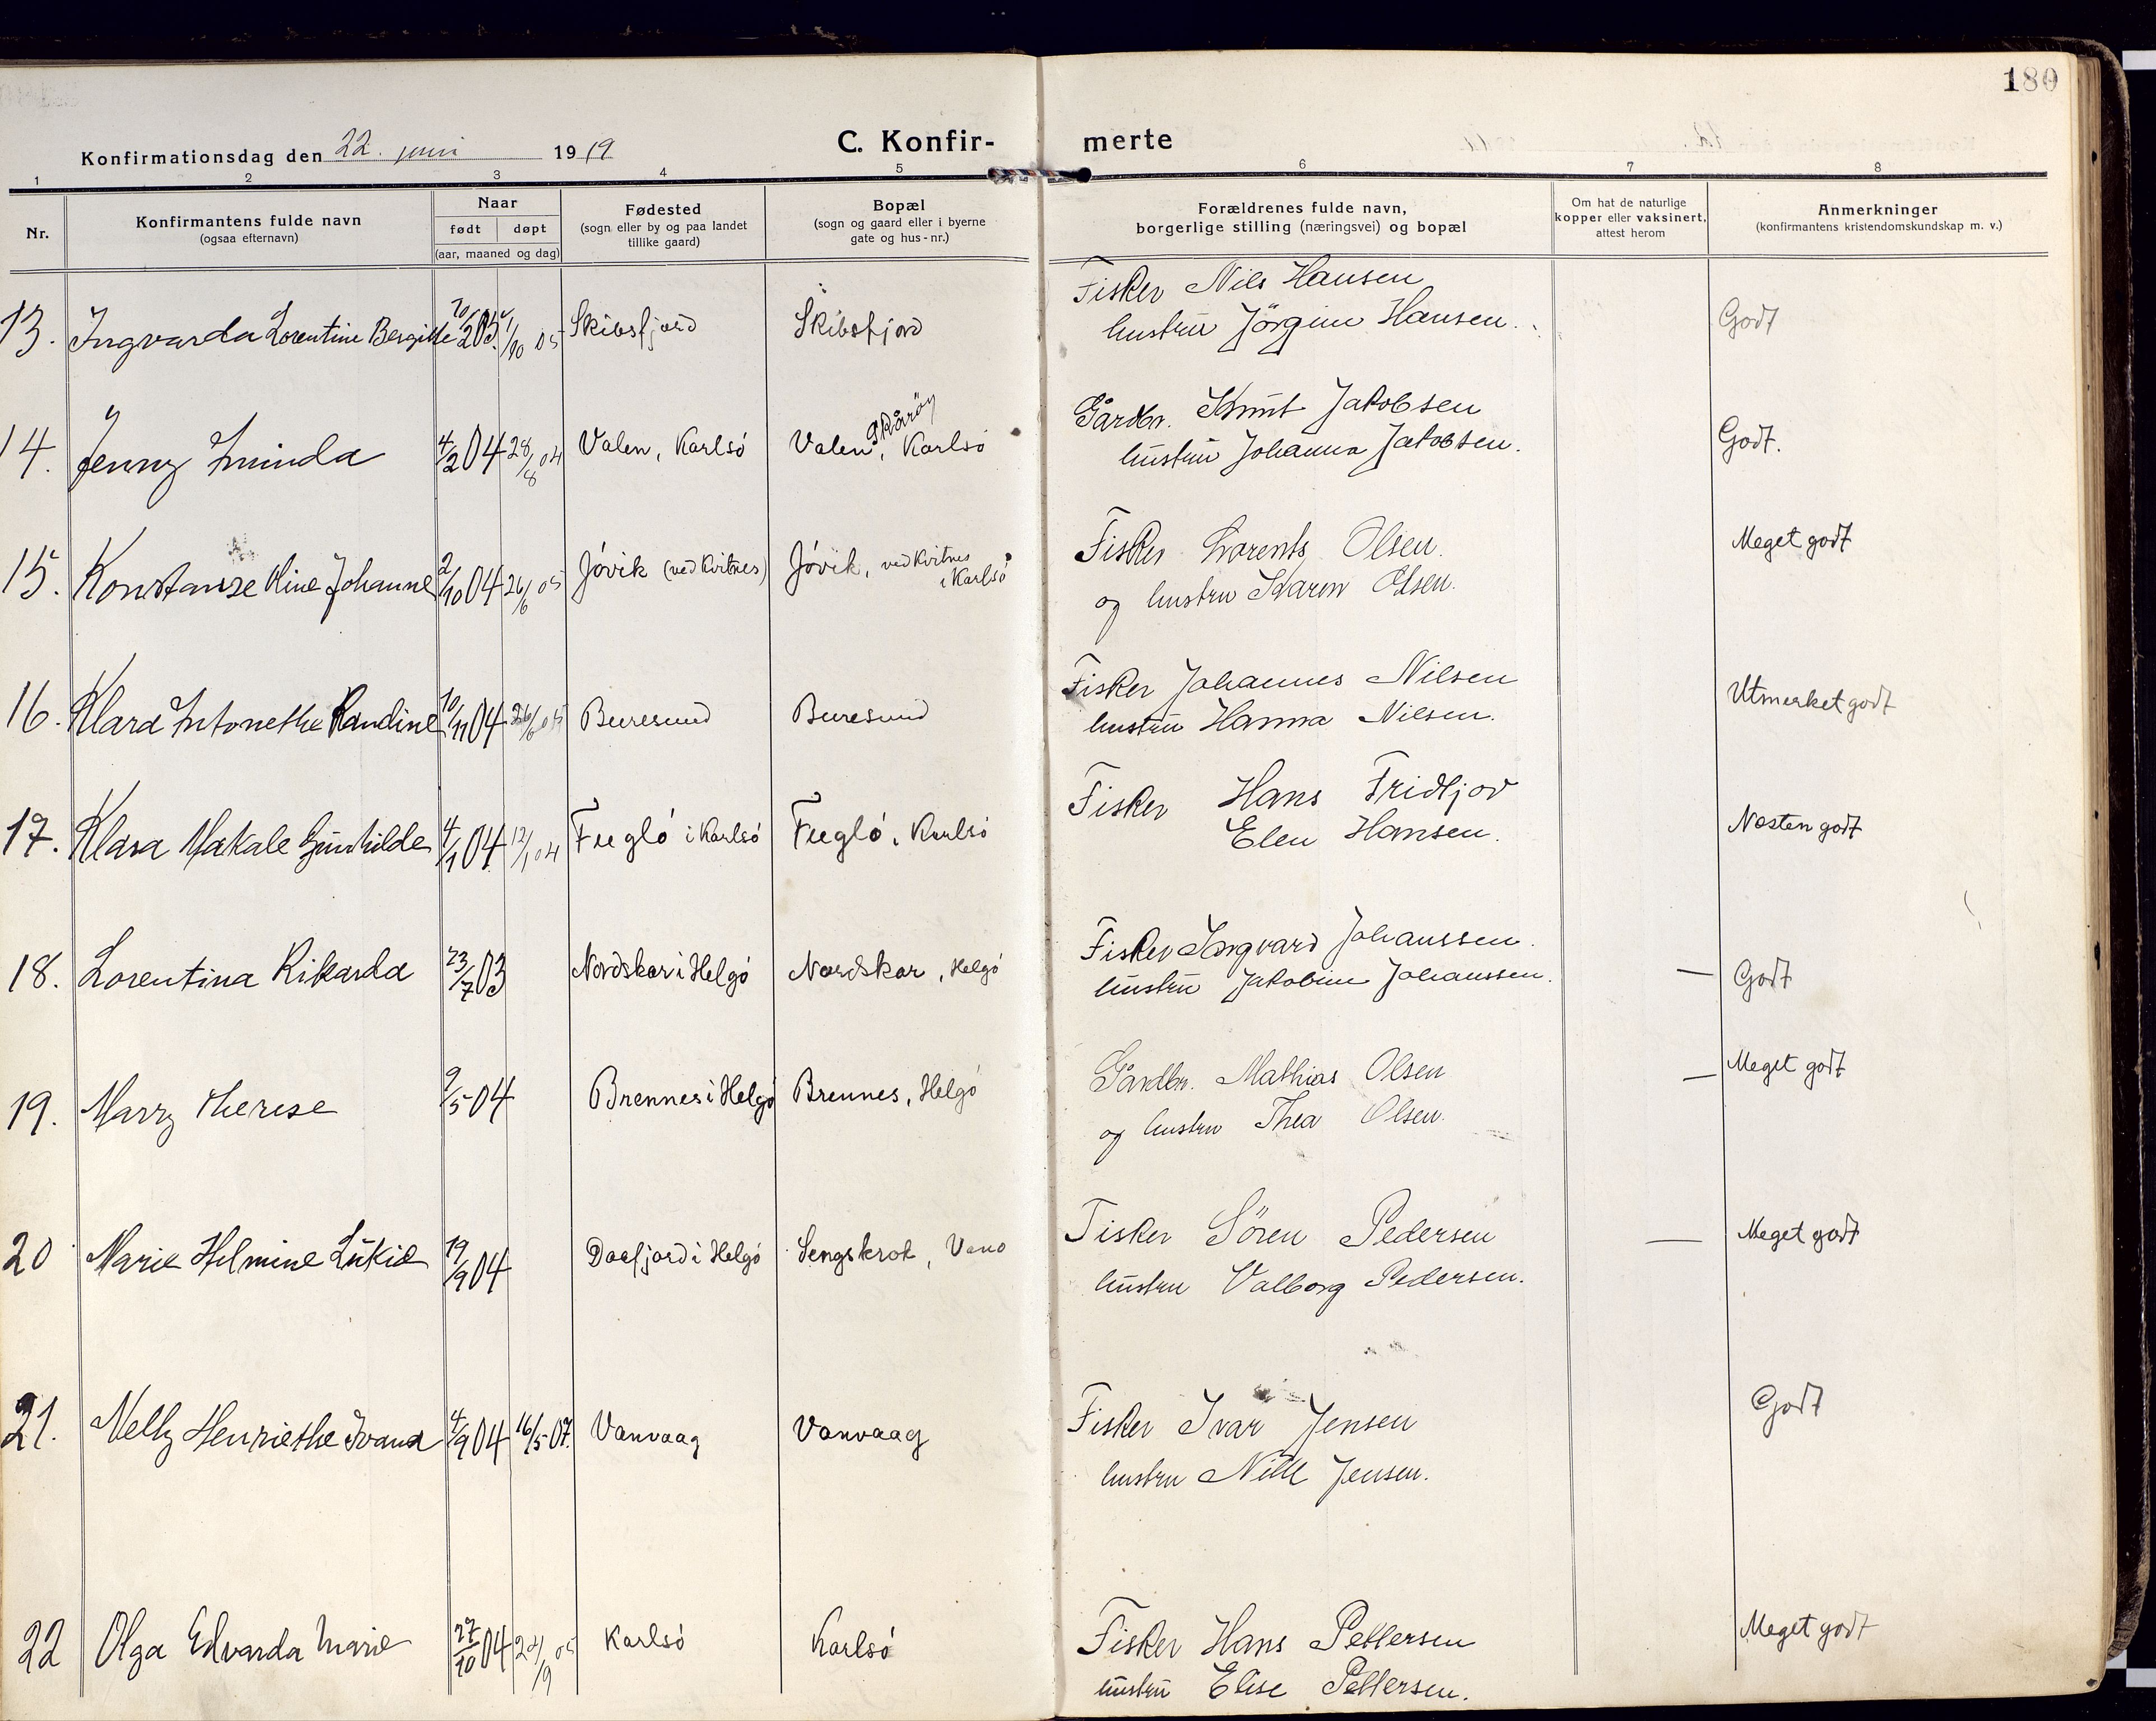 180
C. Konfir- merte
Konfirmationsdag den 22. juni 1919
1 2 3 4 5 6 7 8
Nr.
Konfirmantens fulde navn
(ogsaa efternavn)
Naar
født døpt
(aar, maaned og dag)
Fødested
(sogn eller by og paa landet
tillike gaard)
Bopæl
(sogn og gaard eller i byerne
gate og hus-nr.)
Forældrenes fulde navn,
borgerlige stilling (næringsvei) og bopæl
Om hat de naturlige
kopper eller vaksinert,
attest herom
Anmerkninger
(konfirmantens kristendomskundskap m. v.)
Fisker Nils Hansen
13. Ingvarda Lorentine Bergitte 05 1/10 05 Skibsfjord Skibsfjord hustru Jörgine Hansen. Godt
Gårdbr. Knut Jakobsen
14. Jenny 4/2 04 28/8 04 Valen, Karlsö Valen, Skåröy, Karlsö hustru Johanna Jakobsen. Godt.
Fisker Lorents Olsen.
15. Konstanse Kine Johanne 2/10 04 26/6 05 Jövik (ved Kvitnes) Jövik, ved Kvitnes i Karlsö og hustru Karen Olsen. Meget godt
Fisker Johannes Nilsen
16. Klara Antonethe Randine 10/11 04 26/6 05 Buresund Buresund hustru Hanna Nilsen. Utmerket godt
Fisker Hans Fridtjov
17. Klara Makale Gunhilde 4/1 04 12/1 04 Fuglö i Karlsö Fuglö, Karlsö Elen Hansen. Nesten godt
Fisker Ingvard Johanssen.
18. Lorentina Rikarda 23/7 03 Nordskar i Helgö Nordskar, Helgö hustru Jakobine Johanssen. — Godt
Gårdbr. Mathias Olsen
19. Marry Therese 9/5 04 Brennes i Helgö Brennes, Helgö og hustru Thea Olsen. — Meget godt
Fisker Sören Pedersen
20 Marie Helmine Lukie 19/9 04 Dåfjord i Helgö Sengskrok, Vano hustru Valborg Pedersen. — Meget godt
Fisker Ivar Jensen
21. Nelly Henriethe Ivana 4/9 04 16/5 07. Vanvaag Vanvaag hustru Jensen. Godt
Fisker Hans Pettersen
22 Olga Edvarda Marie 27/10 04 24/9 05 Karlsö Karlsö hustru Elise Pettersen. Meget godt